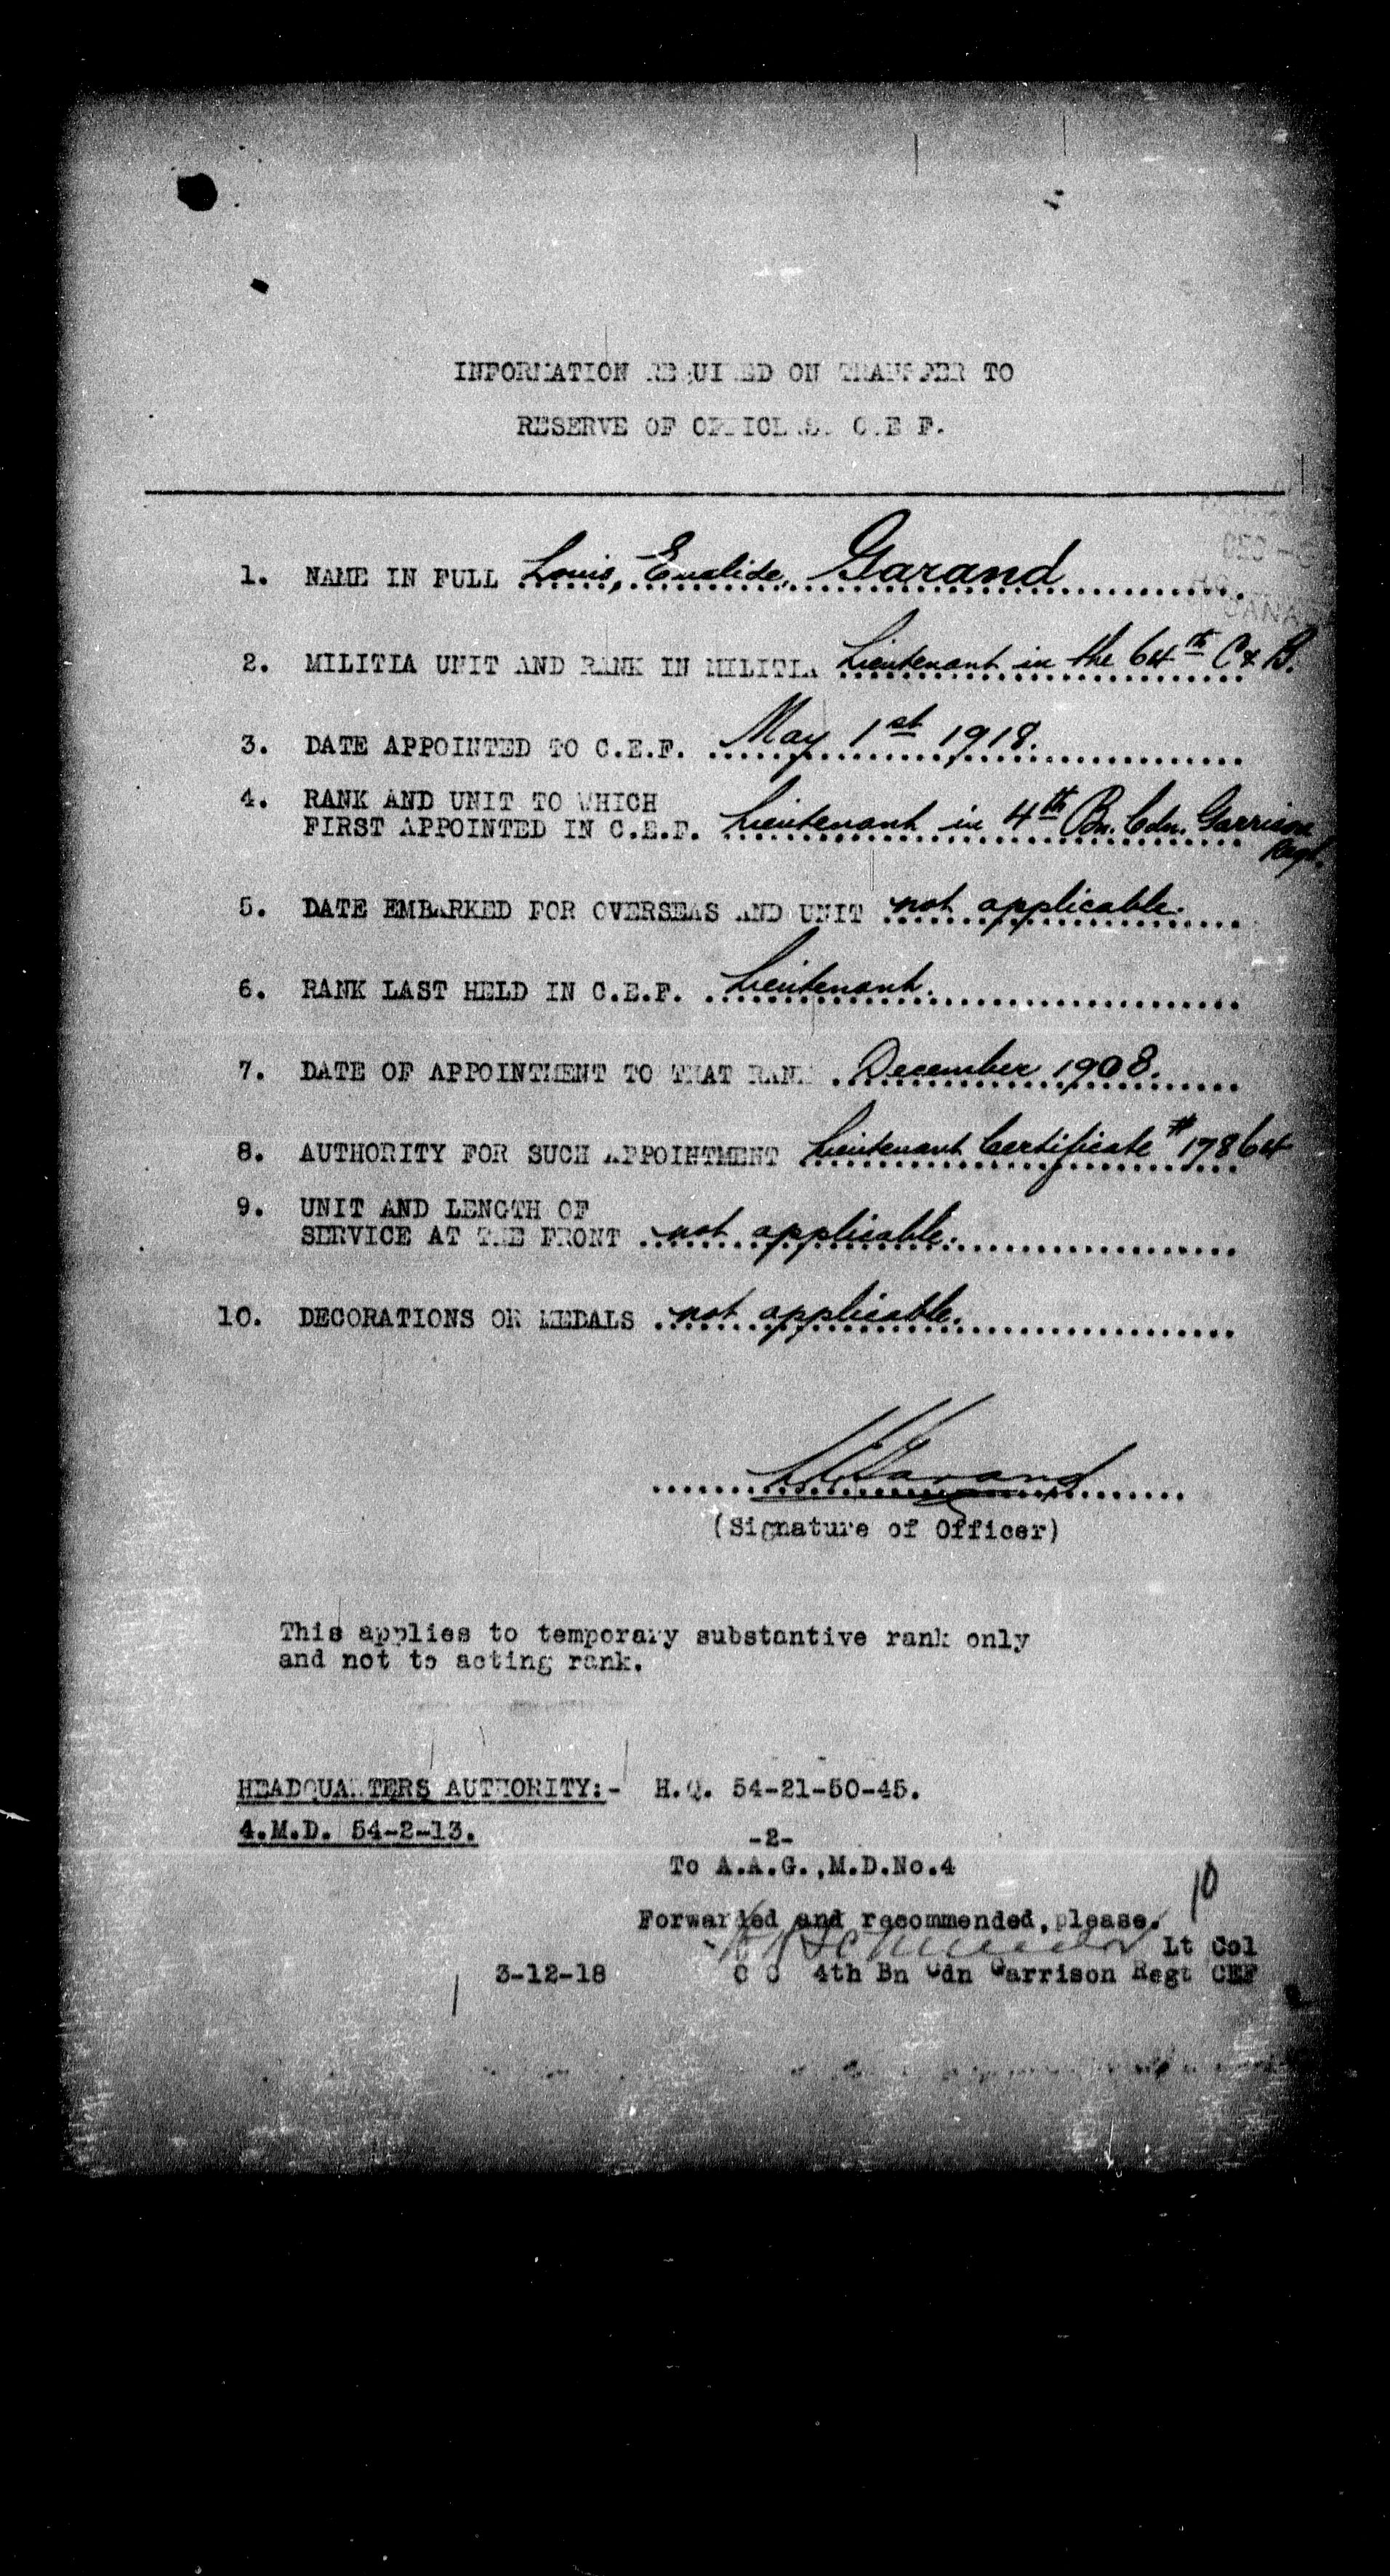 INFORMATION REQUIRED ON TRANSFER TO
RESERVE OF OFFICERS. C.E F.
DEC
CANADA
1. NAME IN FULL Louis, Euclide, Garand
2. MILITIA UNIT AND RANK IN MILITIA Lieutenant in the 64th C & B.
3. DATE APPOINTED TO C.E.F. May 1st 1918.
4. RANK AND UNIT TO WHICH
FIRST APPOINTED IN C.E.F. Lieutenant in 4th Bn. Cdn. Garrison
Regt.
5. DATE EMBARKED FOR OVERSEAS AND UNIT not applicable.
6. RANK LAST HELD IN C.E.F. Lieutenant.
7. DATE OF APPOINTMENT TO THAT RANK December 1908.
8. AUTHORITY FOR SUCH APPOINTMENT Lieutenant Certificate # 17864
9. UNIT AND LENGTH OF
SERVICE AT THE FRONT not applicable.
10. DECORATIONS OR MEDALS not applicable.
L E Garand
(Signature of Officer)
This applies to temporary substantive rank only
and not to acting rank.
HEADQUARTERS AUTHORITY:- H.Q. 54-21-50-45.
4.M.D. 54-2-13.
-2-
To A.A.G.,M.D.No.4
10
Forwarded and recommended, please.
Lt Col
3-12-18 O C 4th Bn Cdn Garrison Regt CEF